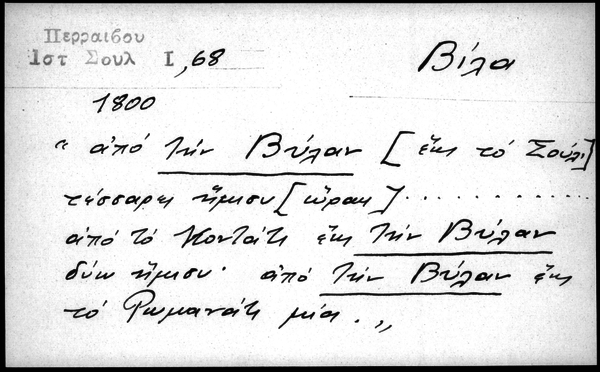 Περραιβου
Ιστ Σουλ Ι, 68
Βίλα
1800
"ἀπό τήν Βύλαν [ἕως τό Σούλι]
τέσσαρες ἥμισυ [ὥρας] . . . . . . . . . .
ἀπό τό Κοντάτι ἕως τήν Βύλαν
δύω ἥμισυ· ἀπό τήν Βύλαν ἕως
τό Ρωμανάτι μία . „